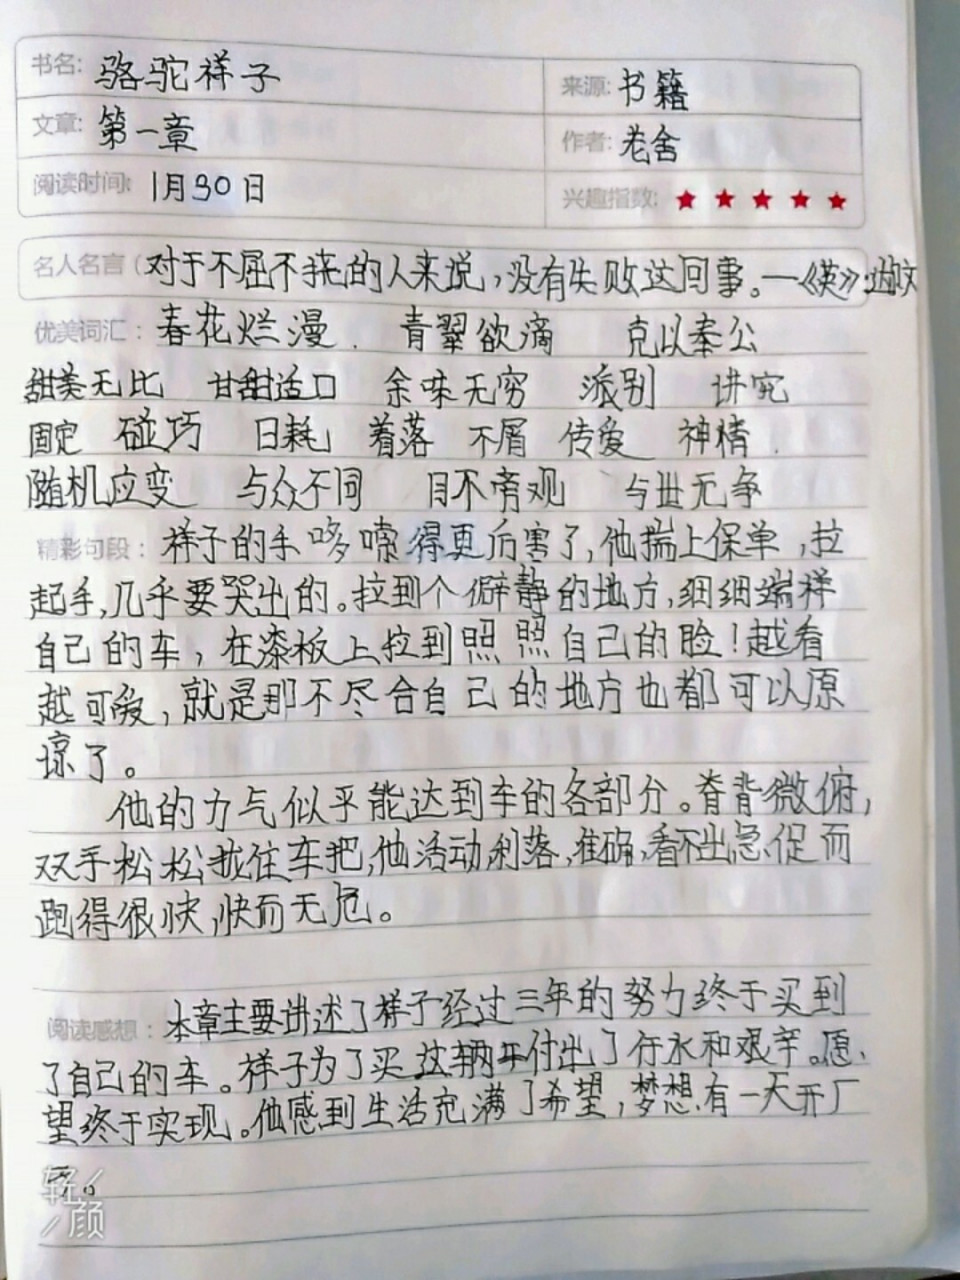 书名: 骆驼祥子 来源: 书籍
文章: 第一章 作者: 老舍
阅读时间: 1月30日 兴趣指数: ★★★★★
名人名言 对于不屈不挠的人来说,没有失败这回事。——《英》
优美词汇: 春花烂漫. 青翠欲滴 克以奉公
甜美无比 甘甜适口 余味无穷 派别 讲究
固定 碰巧 日耗 着落 不屑 传爱 神情.
随机应变 与众不同 目不旁观 与世无争
精彩句段: 祥子的手哆嗦得更厉害了,他揣上保单,拉
起手,几乎要哭出的。拉到个僻静的地方,细细端样
自己的车,在漆板上拉到照照自己的脸!越看
越可爱,就是那不尽合自己的地方也都可以原
谅了。
他的力气似乎能达到车的各部分。脊背微俯,
双手松松拢住车把,他活动,利落,准确,看不出急促而
跑得很快,快而无危。
阅读感想: 本章主要讲述了祥子经过三年的努力终于买到
了自己的车。祥子为了买这辆车付出了汗水和艰辛。愿、
望终于实现。他感到生活充满了希望,梦想有一天开厂
子。
轻颜